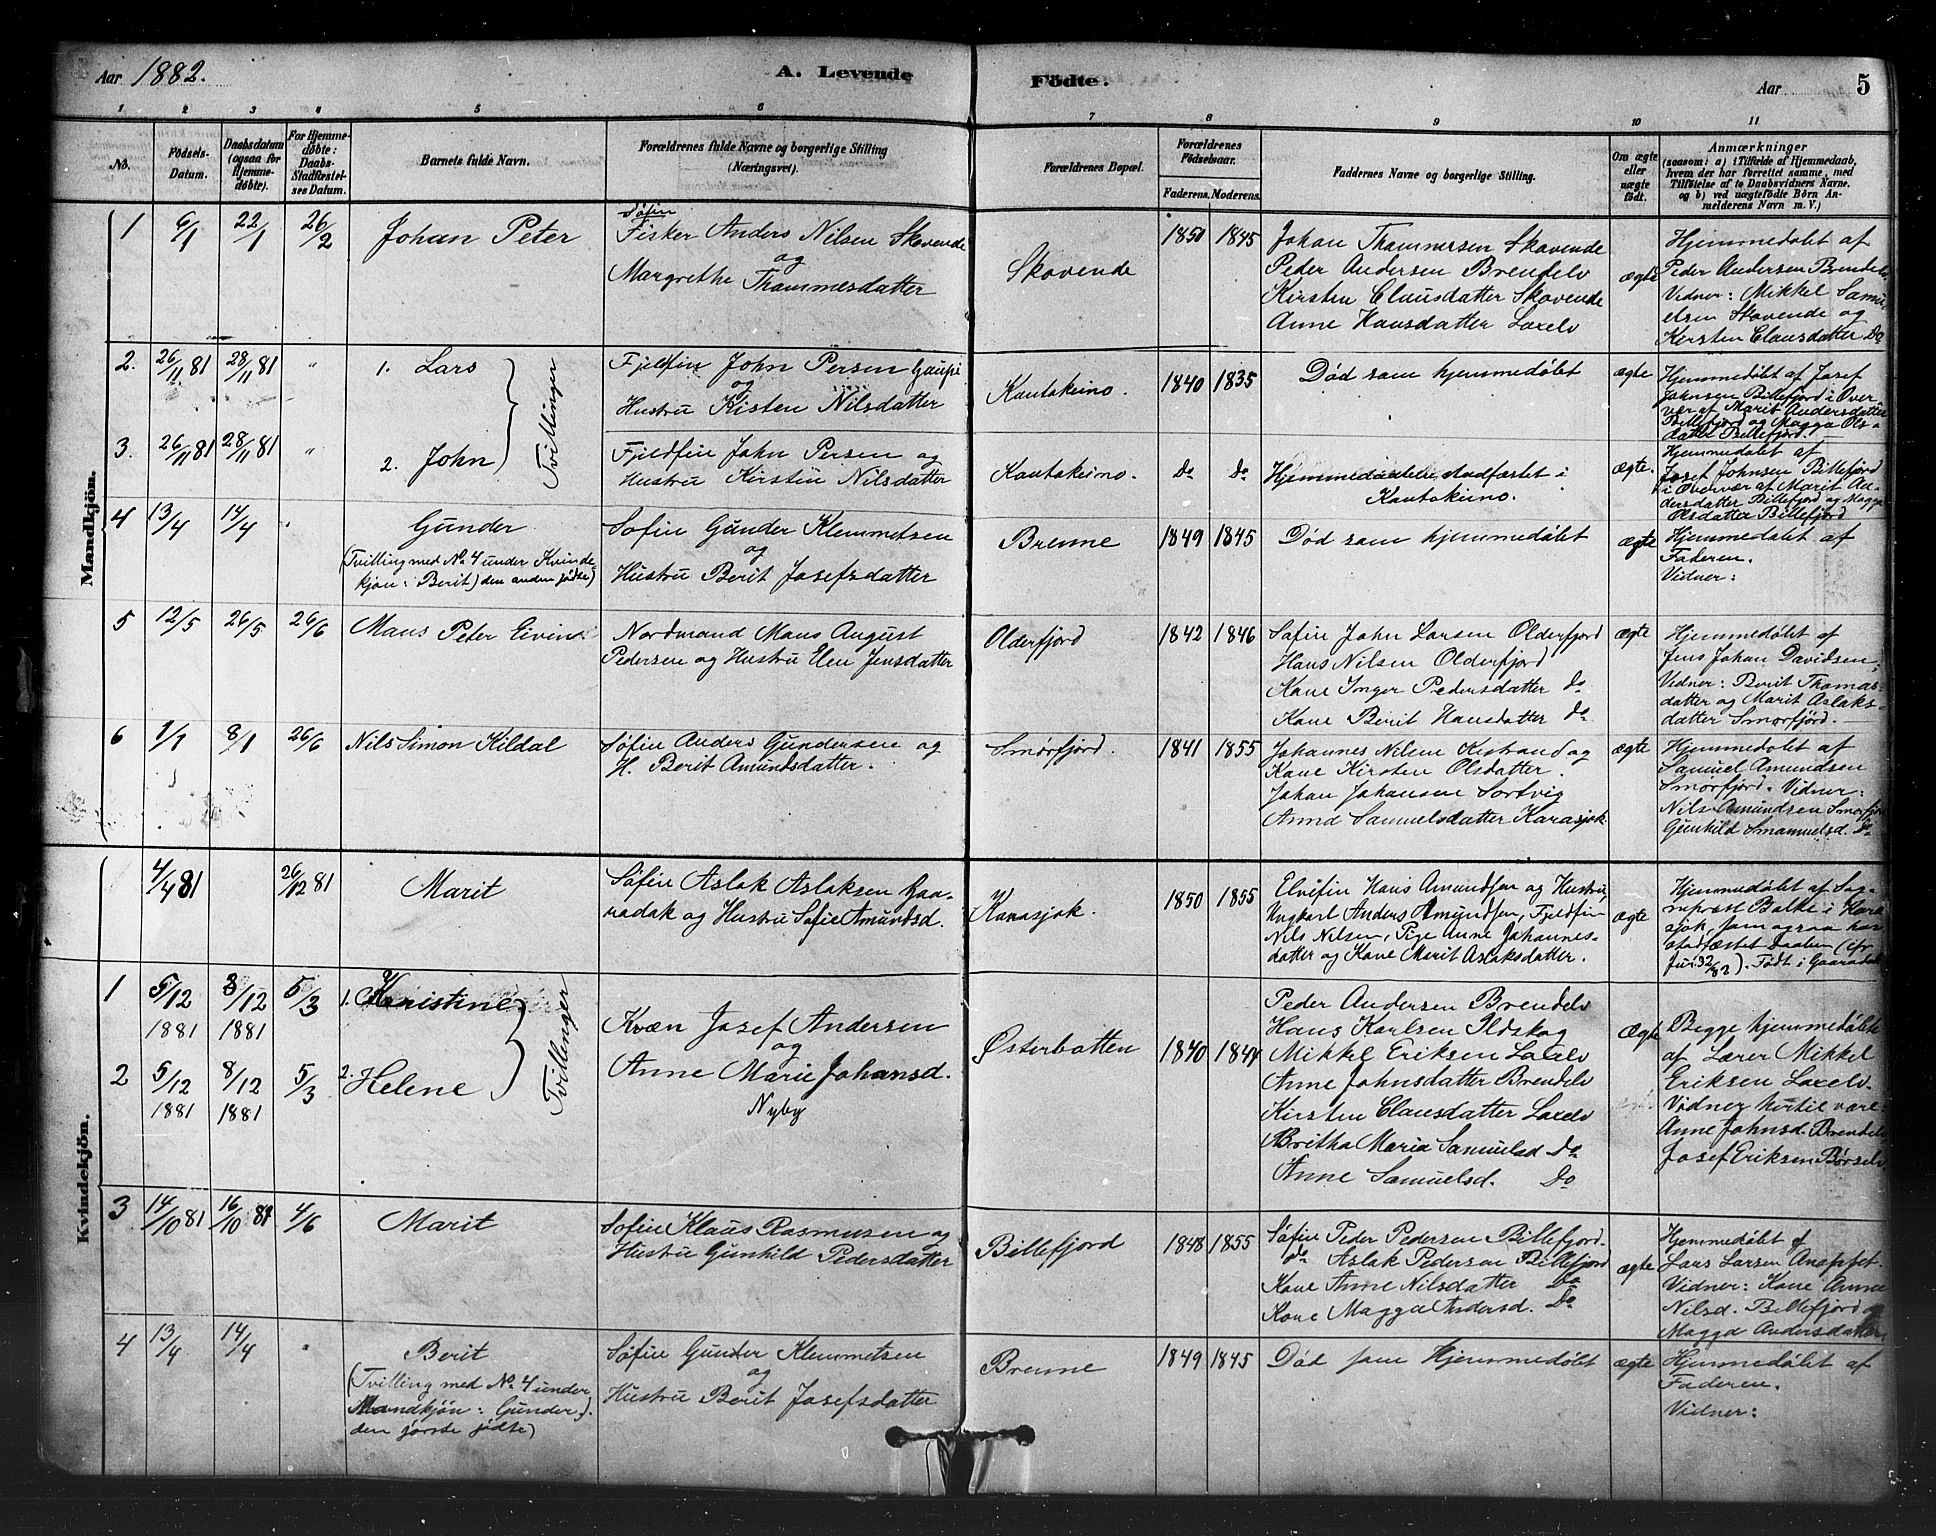 Aar 1882.
A. Levende
Födte.
Aar
5
1 2 3 4 5 6 7 8 9 10 11
No.
Födsels-
Datum.
Daabsdatum
(ogsaa for
Hjemme-
døbte).
For Hjemme-
døbte:
Daabs-
Stadfæstel-
ses Datum.
Barnets fulde Navn.
Forældrenes fulde Navne og borgerlige Stilling
(Næringsvei).
Forældrenes Bopæl.
Forældrenes
Födselsaar.
Faderens. Moderens.
Faddernes Navne og borgerlige Stilling.
Om ægte
eller
uægte
födt.
Anmærkninger
(saasom: a) i Tilfælde af Hjemmedaab,
hvem der har forrettet samme, med
Tilföielse af to Daabsvidners Navne,
og b) ved uægtefödte Börn An-
melderens Navn m. V.)
Mandkjön.
1 6/1 22/1 26/2
Johan Peter
Söfin
Fisker Anders Nilsen Skovende
og
Margrethe Thommesdatter
Skovende
1850 1845
Johan Thommesen Skovende
Peder Andersen Brendelv
Kirsten Clausdatter Skovende
Anne Hansdatter Laxelv
ægte
Hjemmedøbt af
Peder Andersen Brendelv
Vidner: Mikkel Samu-
elsen Skovende og
Kirsten Clausdatter Do
2. 26/11 81 28/11 81 "
1. Lars
Tvillinger
Fjeldfin John Persen Gaupi
og
Hustru Kisten Nilsdatter
Kautokeino.
1840 1835
Død som hjemmedøbt
ægte
Hjemmedøbt af Josef
Johnsen Billefjord i Over-
vær af Marit Andersdatter
Billefjord og Magga Ols-
datter Billefjord.
3. 26/11 81 28/11 81 "
2. John
Fjeldfin John Persen og
Hustru Kirstin Nilsdatter
Kautokeino.
Do Do
Hjemmedaaben stadfæstet i
Kautokeino.
ægte.
Hjemmedøbt af
Josef Johnsen Billefjord
i Overvær af Marit An-
dersdatter Billefjord og Magga
Olsdatter Billefjord
4 13/4 14/4 "
Gunder
(Tvilling med No 4 under Kvinde-
kjön: Berit) den anden fødte)
Søfin Gunder Klemmetsen
og
Hustru Berit Josefsdatter
Brenne
1849 1845
Død som hjemmedøbt
ægte
Hjemmedøbt af
Faderen.
Vidner:
5 12/5 26/5 26/6
Maus Peter Eivin
Nordmand Maus August
Pedersen og Hustru Elen Jensdatter
Olderfjord
1842 1846
Søfin John Larsen Olderfjord
Hans Nilsen Olderfjord
Kone Inger Pedersdatter do
Kone Berit Hansdatter do
ægte
Hjemmedøbt af
Jens Johan Davidsen;
Vidner: Berit Thomas-
datter og Marit Aslaks-
datter Smörfjörd.
6 1/1 8/1 26/6
Nils Simon Kildal
Søfin Anders Gundersen og
H. Berit Amundsdatter.
Smörfjord.
1841 1855
Johannes Nilsen Kistrand og
Kone Kirsten Olsdatter.
Johan Johansen Sortvig
Anna Samuelsdatter Karasjok
ægte
Hjemmedøbt af
Samuel Amundsen
Smörfjord. Vidner:
Nils Amundsen Smörfjord
Gunhild Smamuelsd. Do
Kvindekjön.
4/4 81 26/12 81
Marit
Söfin Aslak Aslaksen Gaa-
radak og Hustru Sofie Amundsd.
Karasjok.
1850 1855
Elvefin Hans Amundsen og Hustru,
Ungkarl Anders Amundsen, Fjeldfin
Nils Nilsen, Pige Anne Johannes-
datter og Kone Marit Aslaksdatter.
ægte
Hjemmedøbt af Sog-
neprest Balke i Kara-
sjok, som ogsaa har
stadfæstet Daaben (cfr
Jur: 32/82). Født i Gaaradak
1 5/12 1881 8/12 1881 5/3
1. Kristine
Tvillinger
Kvæn Josef Andersen
og
Anne Marie Johansd.
Nyby
Østerbotten
1840 1844
Peder Andersen Brendelv
Hans Karlsen Ildskog
Mikkel Eriksen Laxelv
Anne Johnsdatter Brendelv
Kirsten Clausdatter Laxelv
Britha Maria Samuelsd Do
Anne Samuelsd. Do
Ægte
Begge hjemmedøbte
af Lærer Mikkel
Eriksen Laxelv.
Vidner hertil vare:
Anne Johnsd. Brendelv
Josef Eriksen Børselv
2 5/12 1881 8/12 1881 5/3
2. Helene
3 14/10 81 16/10 81 4/6
Marit
Søfin Klaus Rasmusen og
Hustru Gunhild Pedersdatter
Billefjord
1848 1855
Søfin Peder Pedersen Billefjord.
do Aslak Pedersen Billefjord
Kone Anne Nilsdatter Do
Kone Magga Andersd. Do
ægte
Hjemmedøbt af
Lars Larsen
Vidner: Kone Anne
Nilsd. Billefjord og
Magga Andersdatter
4 13/4 14/4 "
Berit
(Tvilling med No 4 under
Mandkjön: Gunder).
den første fødte)
Søfin Gunder Klemmetsen
og
Hustru Berit Josefsdatter
Brenne
1849 1845
Död som Hjemmedøbt
ægte
Hjemmedøbt af
Faderen.
Vidner: